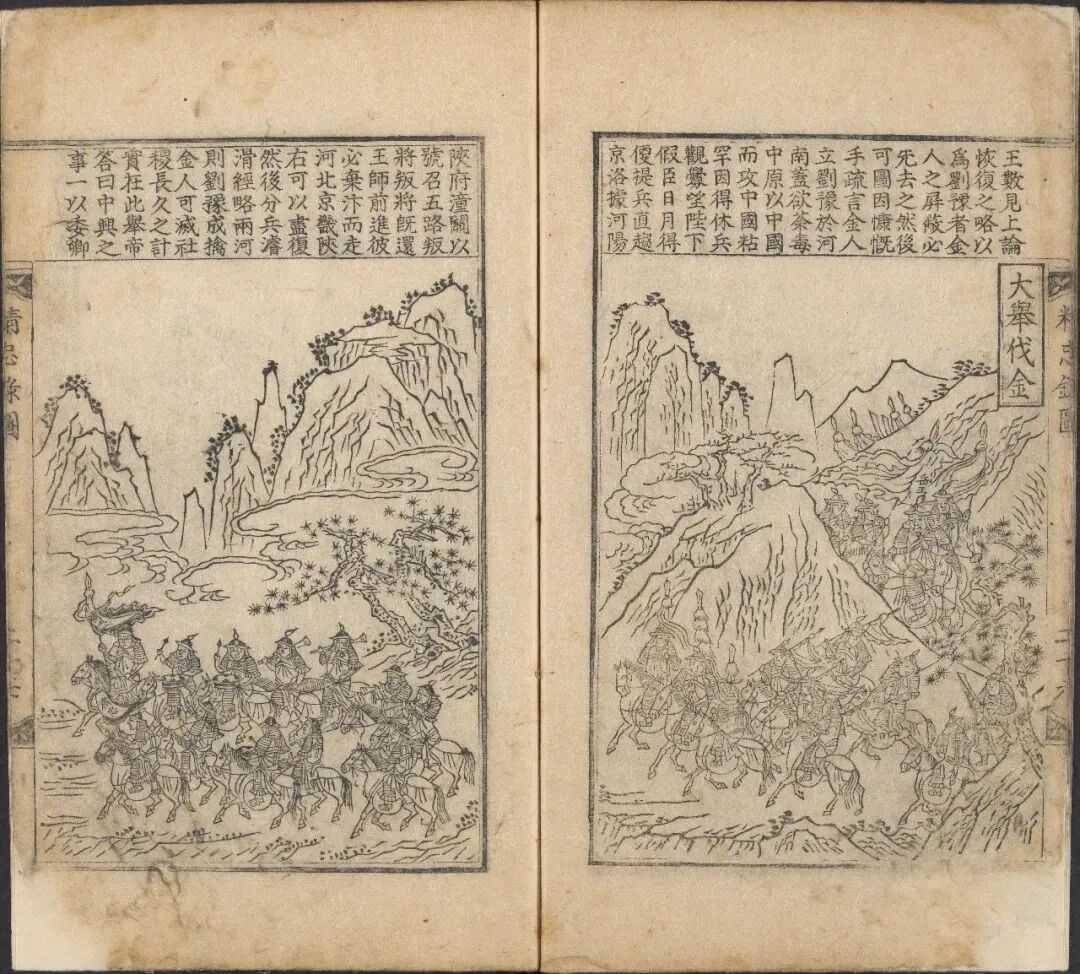 精忠錄圖
大舉伐金
王數見上論
恢復之略以
爲劉豫者金
人之屏蔽必
先去之然後
可圖因慷慨
手疏言金人
立劉豫於河
南蓋欲荼毒
中原以中國
而攻中國粘
罕因得休兵
觀釁望陛下
假臣日月得
便提兵直趨
京洛據河陽
陝府潼關以
號召五路叛
將叛將既還
王師前進彼
必棄汴而走
河北京畿陝
右可以盡復
然後分兵濬
滑經略兩河
則劉豫成擒
金人可滅社
稷長久之計
實在此舉帝
答曰中興之
事一以委卿
精忠錄圖